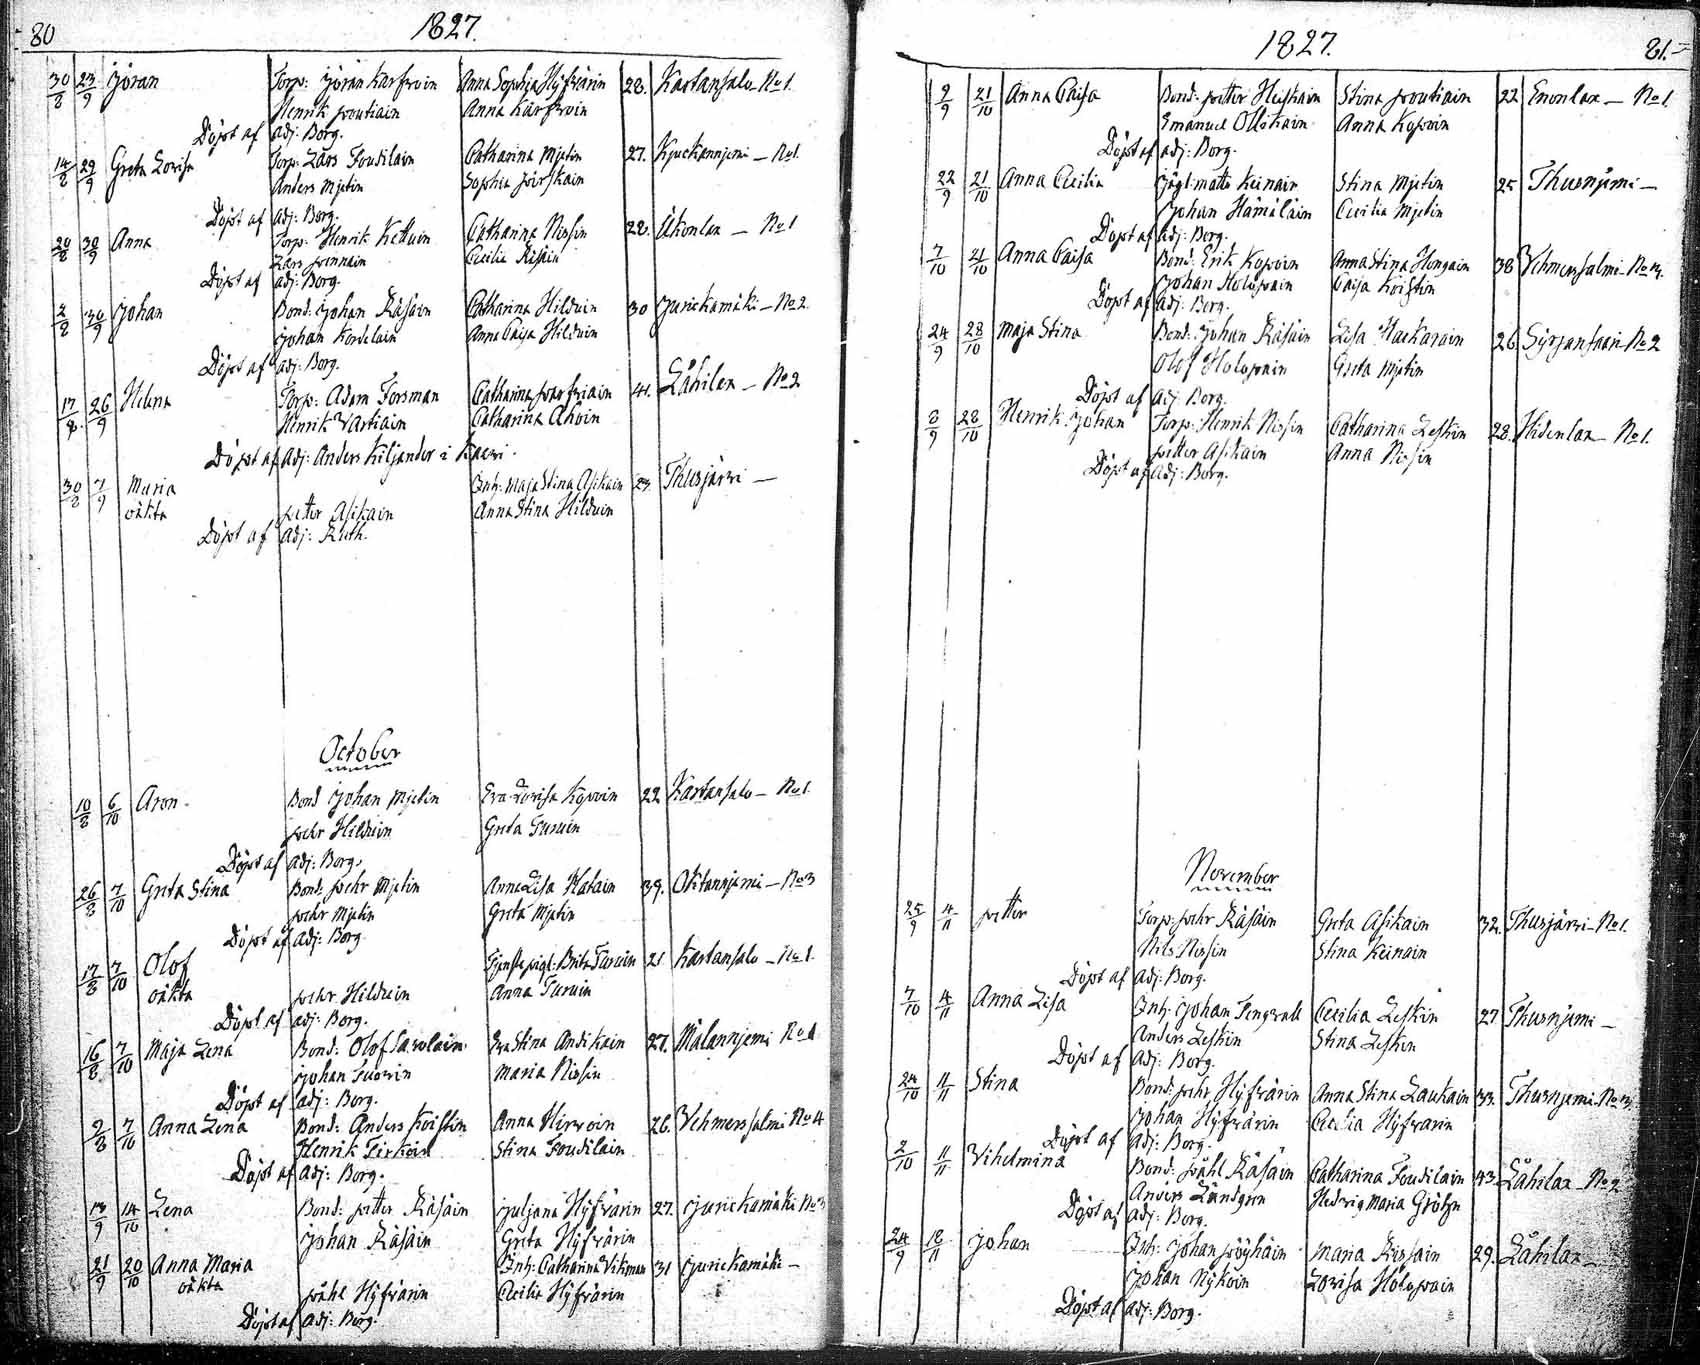 80
1827.
30/8 23/9 Jöran Torp: Jöran Karfwin Anna Sophia Hyfvärin 28. Kartansalo No 1.
Henrik Poutiain Anna Karfwin
Döpt af Adj: Borg.
14/8 29/9 Greta Lovisa Torp: Lars Toudilain Catharina Mjetin 27. No 1.
Anders Mjetin Sophia
Döpt af Adj: Borg.
20/8 30/9 Anna Torp: Henrik Kettuin Catharina Nissin 28. Ukonlax — No 1
Lars Cecilia Räsäin
Döpt af Adj: Borg.
2/8 30/9 Johan Bond: Johan Räsäin Catharina Hilduin 30 Jurickamäki — No 2.
Johan Kordelain Anna Caisa Hilduin
Döpt af Adj: Borg.
17/9. 26/9 Helena Torp: Adam Forsman Catharina 41. Låhilax — No 2
Henrik Vartiain Catharina Ahoin
Döpt af Adj: Anders Kiljander i
30/8 7/9 Maria Inh: Maja Stina Asikain 23. Thusjärvi —
oäkta Petter Asikain Anna Stina Hilduin
Döpt af Adj: Ruth.
October
10/8 6/10 Aron. Bond Johan Mjetin Eva Lovisa Kopoin 22. Kartansalo — No 1.
Pehr Hilduin Greta Turuin
Döpt af Adj: Borg.
26/8 7/10 Greta Stina Bond: Pehr Mjetin Anna Lisa Katain 39. Okkannjemi — No 3
Pehr Mjetin Greta Mjetin
Döpt af Adj: Borg.
17/8 7/10 Olof Tjenstepigl: Brita Turuin 21 Kartansalo — No 1.
oäkta Pehr Hilduin Anna Turuin
Döpt af Adj: Borg.
16/8 7/10 Maja Lena Bond: Olof Savolain Eva Stina Andikain 27. Målannjemi No 1
Johan Tuovin Maria Nissin
Döpt af Adj: Borg.
2/8 7/10 Anna Lena Bond: Anders Koistin Anna Hirvoin 26. Vehmersalmi No 4
Henrik Tirkoin Stina Toudilain
Döpt af Adj: Borg.
13/9 14/10 Lena Bond: Petter Räsäin Juljana Hyfvärin 27. Jurickamäki No 3
Johan Räsäin Greta Hyfvärin
21/9 20/10 Anna Maria Inh: Catharina Vikman 31 Jurickamäki —
oäkta Påhl Hyfvärin Cecilia Hyfvärin
Döpt af Adj: Borg.
1827.
81.
2/9 21/10 Anna Caisa Bond: Petter Heiskain Stina Poutiain 22 Enonlax — No 1
Emanuel Ollikain Anna Kopoin
Döpt af Adj: Borg.
22/9 21/10 Anna Cecilia Jägl: Matts Keinain Stina Mjetin 25 Thusnjemi —
Johan Hämäläin Cecilia Mjetin
Döpt af Adj: Borg.
7/10 21/10 Anna Caisa Bond: Erik Kopoin Anna Stina Hongain 38 Vehmersalmi No 4.
Johan Holopain Caisa Koistin
Döpt af Adj: Borg.
24/9 28/10 Maja Stina Bond: Johan Räsäin Lisa Hackarain 26. Syrjänsaari No 2
Olof Holopain Greta Mjetin
Döpt af Adj: Borg.
8/9 28/10 Henrik Johan Torp: Henrik Nissin Catharina Leskin 28. Hidenlax — No 1.
Petter Asikain Anna Nissin
Döpt af Adj: Borg.
November
25/9 4/11 Petter Torp: Pehr Räsäin Greta Asikain 32. Thusjärvi — No 1.
Nils Nissin Stina Keinain
Döpt af Adj: Borg.
7/10 4/11 Anna Lisa Inh: Johan Tengvall Cecilia Leskin 27 Thusnjemi —
Anders Leskin Stina Leskin
Döpt af Adj: Borg.
24/10 11/11 Stina Bond: Pehr Hyfvärin Anna Stina Laukain 33. Thusnjemi No 3.
Johan Hyfvärin Cecilia Hyfvarin
Döpt af Adj: Borg.
2/10 11/11 Vilhelmina Bond: Påhl Räsäin Catharina Toudilain 43. Låhilax — No 2
Anders Lundgren Hedvig Maria
Döpt af Adj: Borg.
24/9 18/11 Johan Inh: Johan Pöyhäin Maria Rissain 29. Låhilax —
Johan Nykoin Lovisa Holopain
Döpt af Adj: Borg.